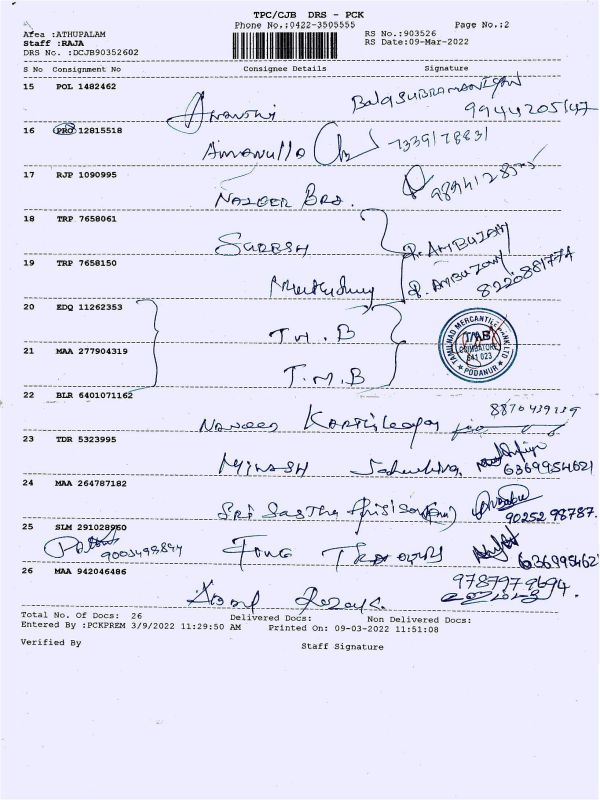 TPC/CJB DRS - PCK
Phone No.:0422-3505555 Page No.:2
Area :ATHUPALAM
Staff :RAJA
DRS No. :DCJB90352602
RS No.:903526
RS Date:09-Mar-2022
S No Consignment No Consignee Details Signature
15 POL 1482462
BalaSUBRAMANIYAN
9944205147
16 PRO 12815518
Amanulla 7339178831
17 RJP 1090995
NAZEER BRS.
18 TRP 7658061
SURESH R. AMBUJAM
19 TRP 7658150
R. AMBUJAM
8220881774
20 EDQ 11262353
T.M.B
TAMILNAD MERCANTILE BANK LTD
TMB
COIMBATORE
641 023
* PODANUR *
21 MAA 277904319
T.M.B
22 BLR 6401071162
23 TDR 5323995
6369954621
24 MAA 264787182
Sri Sastha
9025298787.
25 SLM 291028960
9003498894
6369954621
26 MAA 942046486
9787979694.
Total No. Of Docs: 26 Delivered Docs: Non Delivered Docs:
Entered By :PCKPREM 3/9/2022 11:29:50 AM Printed On: 09-03-2022 11:51:08
Verified By Staff Signature